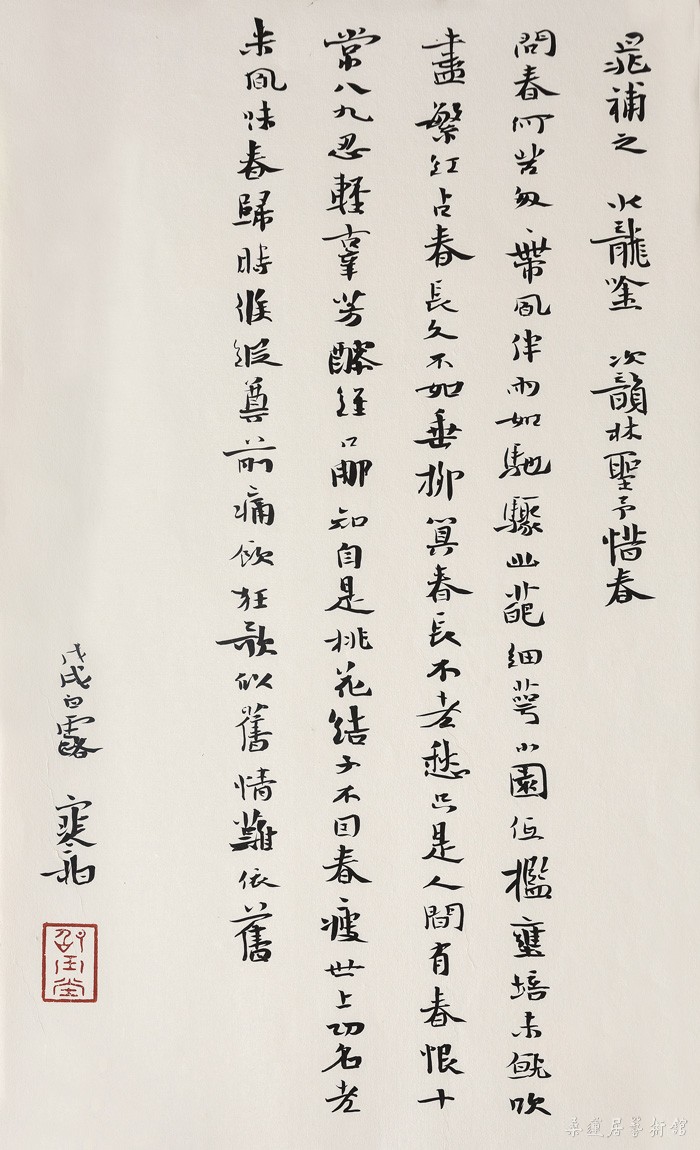 晁補之 水龍唫 次韻林聖予惜春
問春何苦匆、帶風伴雨如馳驟幽葩細萼小園低檻壅培未就吹
盡繁紅占春長久不如垂柳算春長不老愁只是人間有春恨十
常八九忍輕辜芳醪經口那知自是桃花結子不因春瘦世上功名老
来風味春歸時候縱尊前痛飲狂歌似舊情難依舊
戊戌白露 寒
桑蓮居藝術館